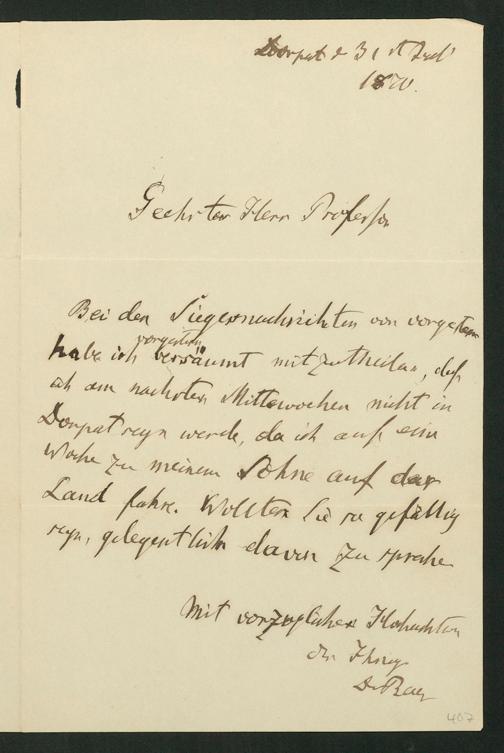 Dorpat d 31st Juli
1870.
Geehrter Herr Professor
Bei den Siegesnachrichten von vorgestern
vorgestern
habe ich versäumt mitzutheilen, daß
ich am nächsten Mittewochen nicht in
Dorpat seyn werde, da ich auf eine
Woche zu meinem Sohne auf das
Land fahre. Wollten Sie so gefällig
seyn, gelegentlich davon zu sprechen
Mit vorzüglicher Hochachtung
der Ihrige
Dr Baer
407